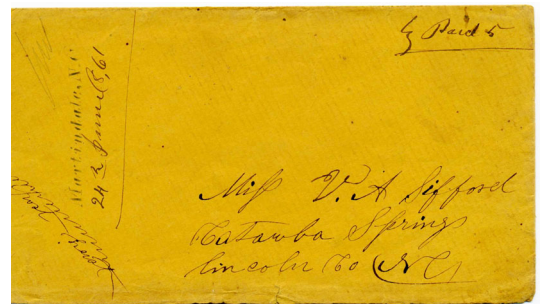 Paid 5
Martindale, N.C
24th June (5, 61
Miss V. A Sifford
Catawba Springs
Lincoln Co (NC)